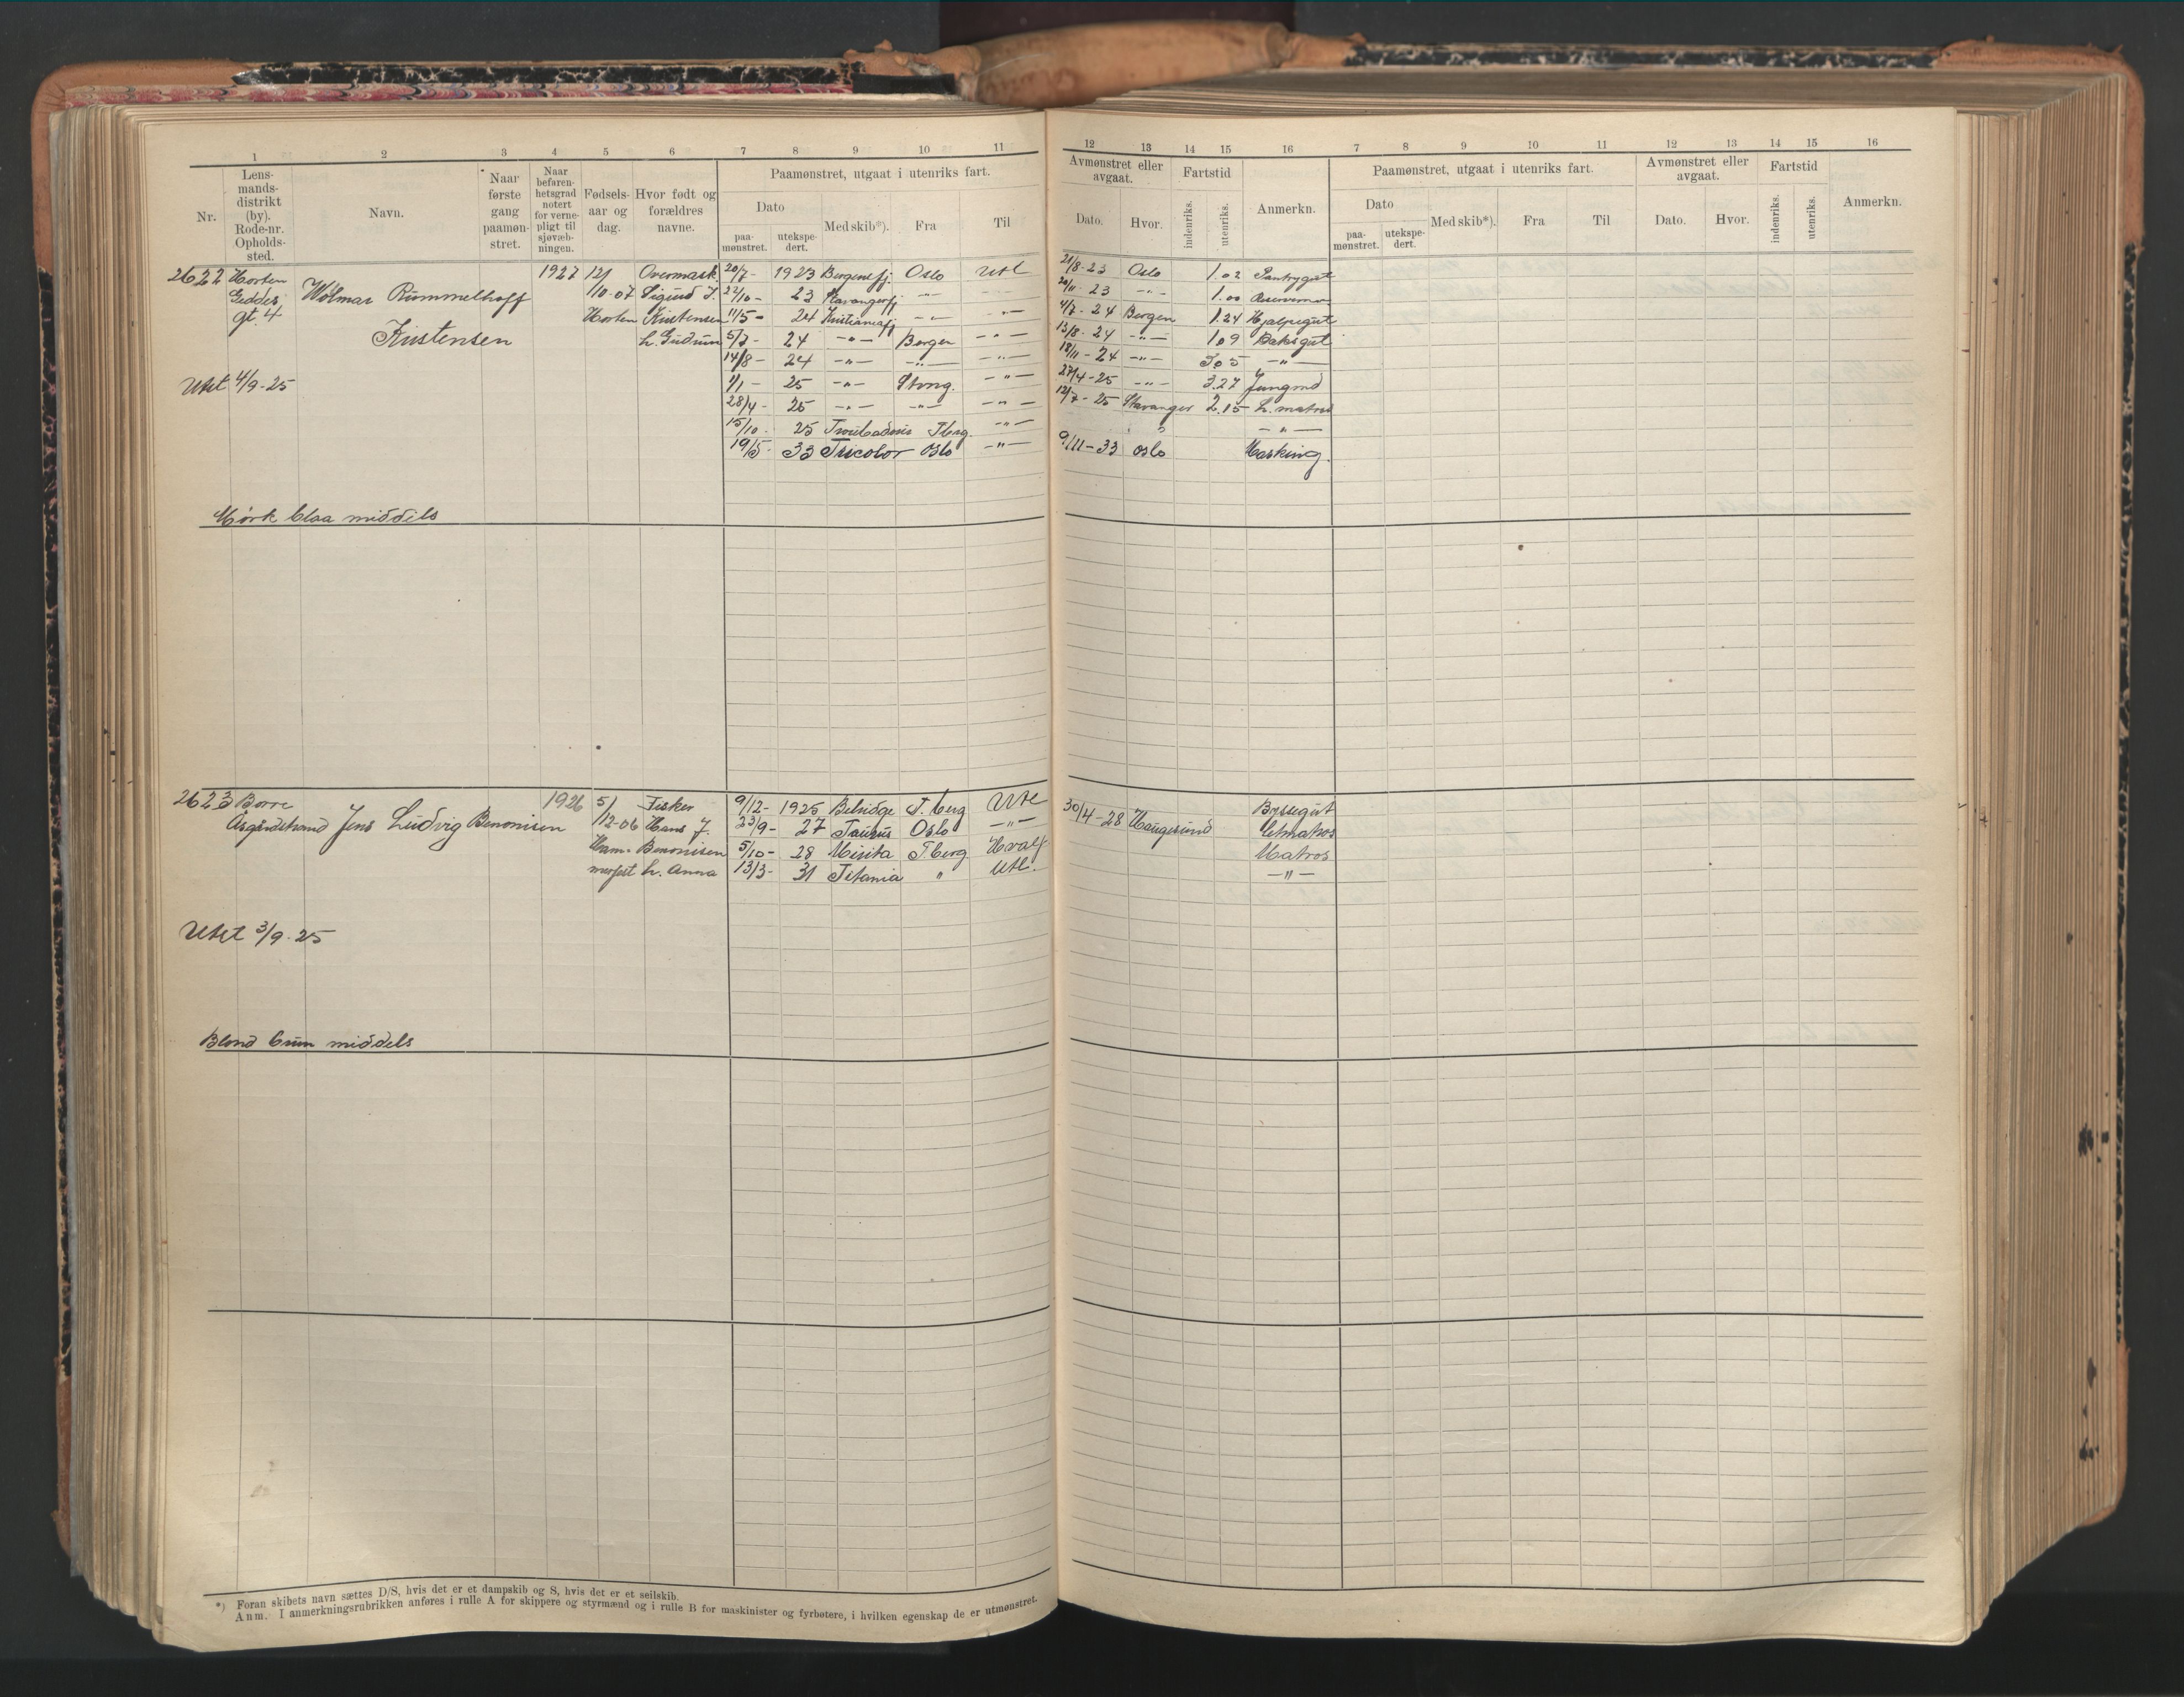 1 2 3 4 5 6 7 8 9 10 11
Nr. Lens-mands-distrikt (by). Rode-nr. Opholds-sted. Navn. Naar første gang paamøn-stret. Naar befaren-hetsgrad notert for verne-pligt til sjøvæb-ningen. Fødsels-aar og dag. Hvor født og forældres navne. Paamønstret, utgaat i utenriks fart.
Dato Med skib*). Fra Til
paa-mønstret. utekspe-dert.
2622 Horten 1927 12/ Overmask. 20/7- 1923 Bergensfj. Oslo Utl
Geddes Wolmar Rummelhoff /10-07 Sigurd J. 22/10- 23 Stavangerfj -"- -"-
gt. 4 Horten Kristensen 11/5- 24 Kristianiafj -"- -"-
Kristensen h. Gudrun 5/7- 24 -"- Bergen -"-
14/8- 24 -"- -"- -"-
Utst 4/9-25 1/1- 25 -"- -"-
28/4- 25 -"- -"- -"-
15/10- 25 Troubadour Tberg. -"-
19/5- 33 Tricolor Oslo -"-
Mörk blaa middels
2623 Borre 1926 5/ Fisker 9/12- 1925 Belridge T.berg Utl
Åsgårdstrand Jens Ludvig Benonisen /12-06 Hans J. 23/9- 27 Taurus Oslo -"-
Ham- Benonisen 5/10- 28 Tberg. Hvalf.
merfest h. Anna 13/3- 31 Titania " Utl.
Utst 3/9-25
Blond brun middels
*) Foran skibets navn sættes D/S, hvis det er et dampskib og S, hvis det er et seilskib.
Anm. I anmerkningsrubrikken anføres i rulle A for skippere og styrmænd og i rulle B for maskinister og fyrbøtere, i hvilken egenskap de er utmønstret.
12 13 14 15 16 7 8 9 10 11 12 13 14 15 16
Avmønstret eller avgaat. Fartstid Anmerkn. Paamønstret, utgaat i utenriks fart. Avmønstret eller avgaat. Fartstid Anmerkn.
Dato. Hvor. indenriks. utenriks. Dato Med skib*). Fra Til Dato. Hvor. indenriks. utenriks.
paa-mønstret. utekspe-dert.
21/8-23 Oslo 1.02 Pantrygut
20/11-23 -"- 1.00
4/7-24 Bergen 1.24 Hjelpegut
13/8-24 -"- 1.09 Baksgut
18/11-24 -"- 3.05 -"-
27/4-25 -"- 3.27 Jungmd
12/7-25 Stavanger 2.15 L. matros
-"-
9/11-33 Oslo Masking.
30/4-28 Haugesund Byssegut
Letmatros
Matros
-"-